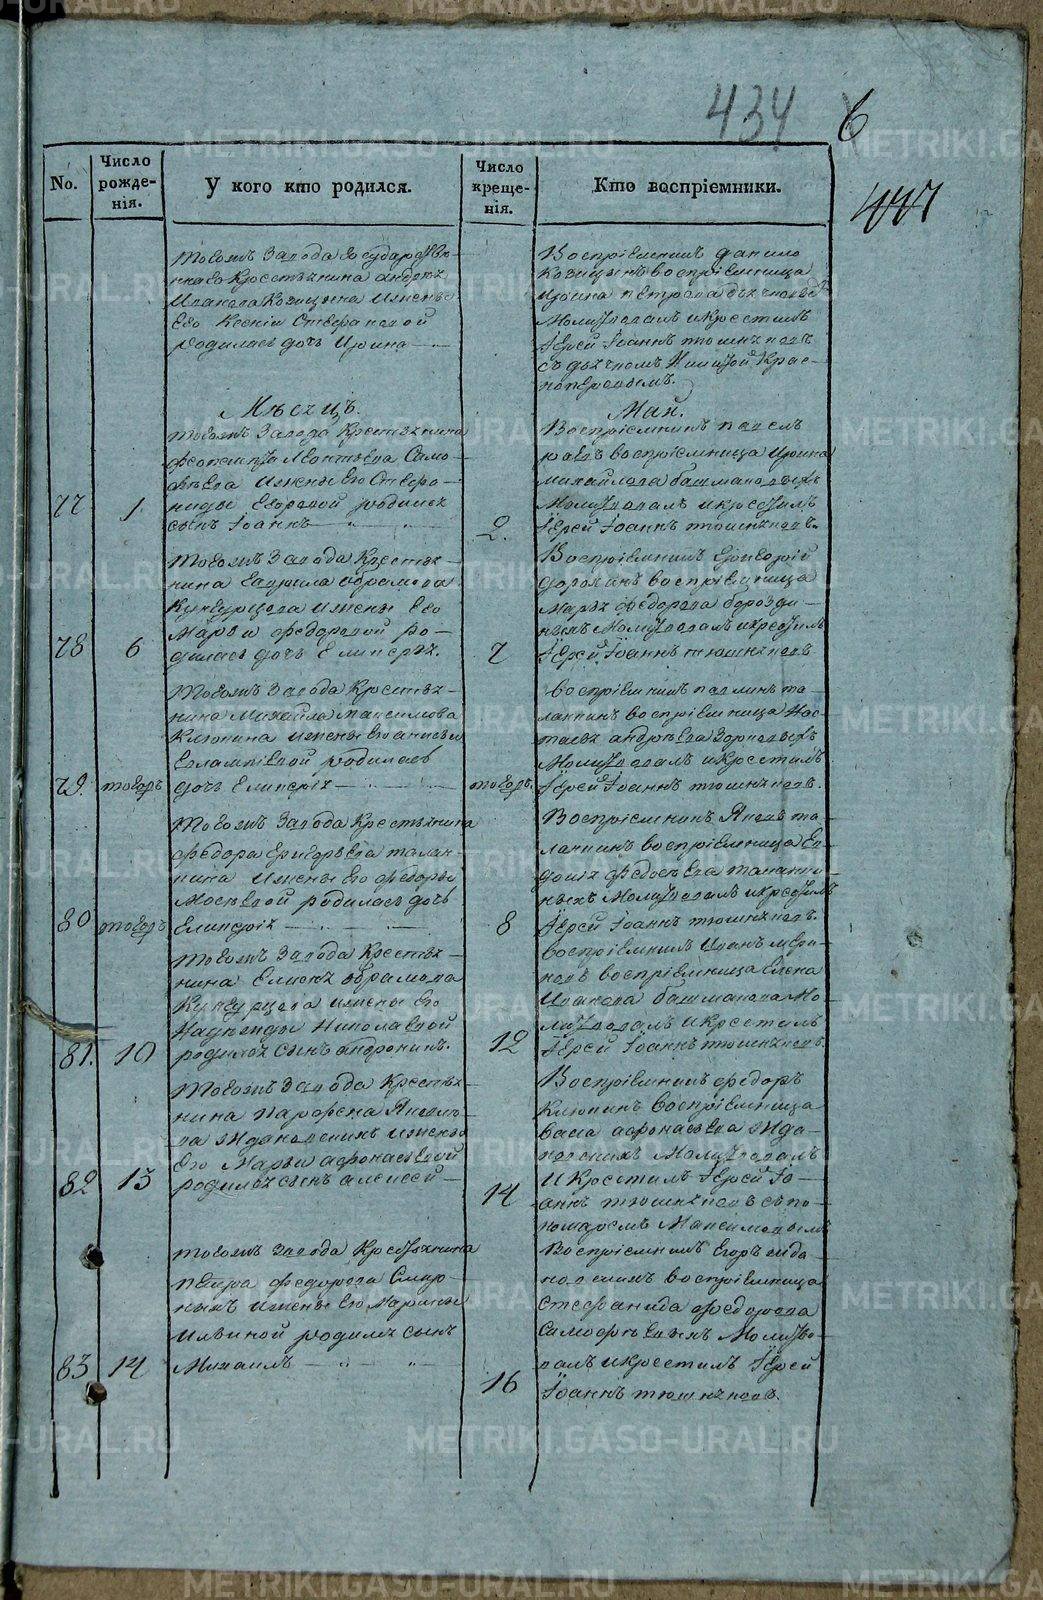 434
6
No.
Число рожде-нія.
У кого кто родился.
Число креще-нія.
Кто воспріемники.
тогожъ Завода Государстве-
ннаго Крестьянина Андрея
Иванова Козицына и жены
Его Ксеніи Стефановой
родилась дочь Ирина
Воспріемникъ Данило
Козицынъ воспріемница
Ирина Петрова
Молитвовалъ и крестилъ
Іерей Іоаннъ Тюшняковъ
съ дьячкомъ Никитой Крас-
ноперовымъ.
Мѣсяцъ.
Май.
77
1.
тогожъ Завода Крестьянина
Феоктиста Леонтьева Само-
фѣева и жены Его Стефа-
ниды Егоровой родился
сынъ Іоаннъ
2.
Воспріемникъ Павелъ
воспріемница Ирина
Михайлова Башмаковыхъ
Молитвовалъ и крестилъ
Іерей Іоаннъ Тюшняковъ.
78
6
тогожъ Завода Крестья-
нина Гаврила Абрамова
Кунгурцова и жены Его
Марьи Федоровой ро-
дилась дочь Гликерія.
7
Воспріемникъ Григорій
воспріемница
Марья Федорова Борозди-
ныхъ Молитвовалъ и крестилъ
Іерей Іоаннъ Тюшняковъ
79.
тогожъ
тогожъ Завода Крестья-
нина Михайла Максимова
Клюкина и жены Его Анисьи
Евлампіевой родилась
дочь Гликерія
тогожъ.
воспріемникъ Павлинъ Та-
ланкинъ воспріемница Нас-
тасья Андрѣева
Молитвовалъ и крестилъ
Іерей Іоаннъ Тюшняковъ.
80
тогожъ
тогожъ Завода Крестьянина
Федора Григорьева Талан-
кина и жены Его Федоры
Мосѣевой родилась дочь
Гликерія
8
Воспріемникъ Яковъ Та-
ланкинъ воспріемница Ев-
докія Федосѣева Таланки-
ныхъ Молитвовалъ и крестилъ
Іерей Іоаннъ Тюшняковъ.
81.
10
тогожъ Завода Крестья-
нина Абрамова
Кунгурцова и жены Его
Надежды Николаевой
родился сынъ Андроникъ.
12
воспріемникъ Иванъ
воспріемница Елена
Иванова Башмакова Мо-
литвовалъ и крестилъ
Іерей Іоаннъ Тюшняковъ.
82
13
тогожъ Завода Крестья-
нина Парфена Яковле-
ва Ждановскихъ и жены
Его Марьи Афонасьевой
родился сынъ Алексей
14
Воспріемникъ Федоръ
Клюкинъ воспріемница
Васса Афонасьева Жда-
новскихъ Молитвовалъ
и Крестилъ Іерей Іо-
аннъ Тюшняковъ съ по-
номаремъ Максимовымъ
83
14
тогожъ Завода Крестьянина
Петра Федорова Смир-
ныхъ и жены Его Марины
Ильиной родился сынъ
Михаилъ
16
Воспріемникъ Егоръ Жда-
новскихъ воспріемница
Стефанида Федорова
Самофѣевыхъ Молитво-
валъ и крестилъ Іерей
Іоаннъ Тюшняковъ.
METRIKI.GASO-URAL.RU